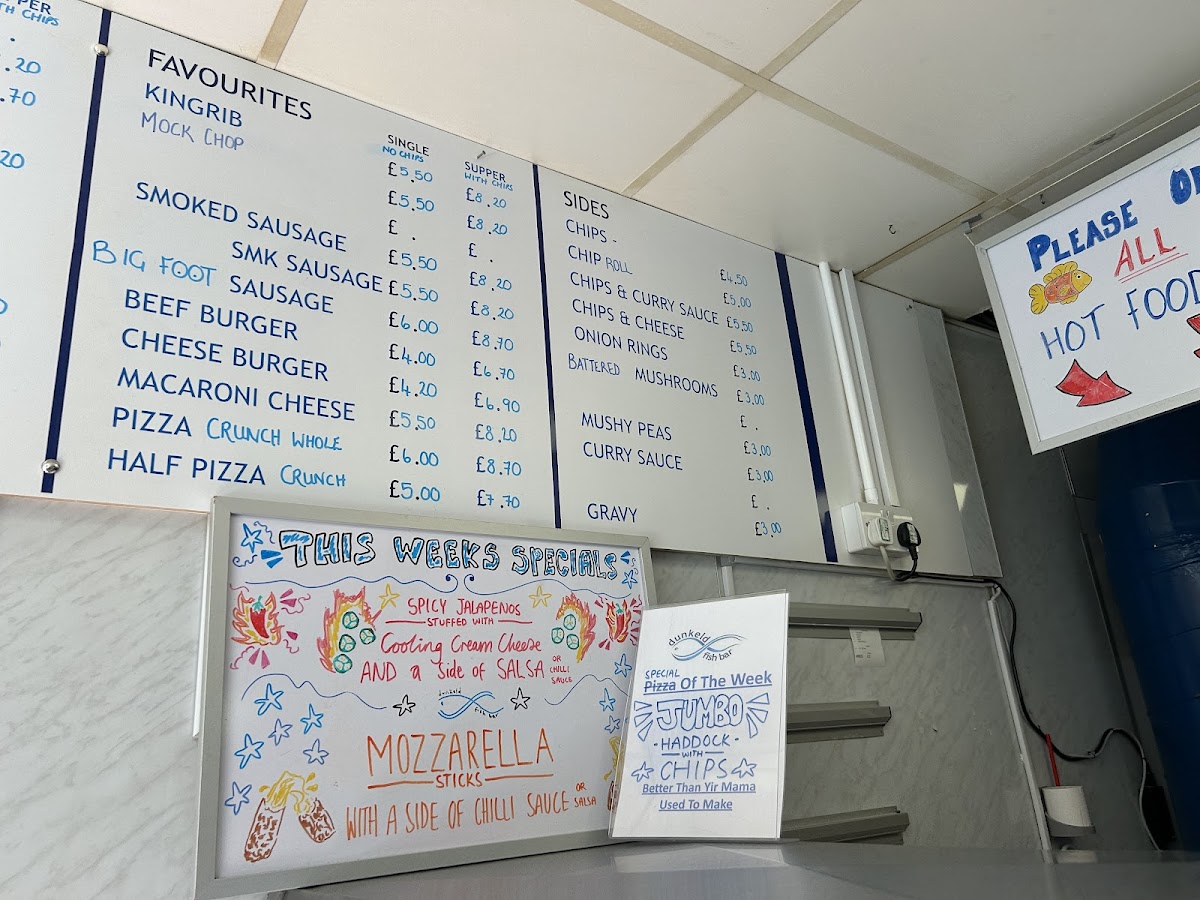 PPER
TH CHIPS
.
.20
.70
20
FAVOURITES
SINGLE SUPPER
NO CHIPS WITH CHIPS
KINGRIB £5.50 £8.20
MOCK CHOP £5.50 £8.20
£ . £ .
SMOKED SAUSAGE £5.50 £8.20
SMK SAUSAGE £5.50 £8.20
BIG FOOT SAUSAGE £6.00 £8.70
BEEF BURGER £4.00 £6.70
CHEESE BURGER £4.20 £6.90
MACARONI CHEESE £5.50 £8.20
PIZZA CRUNCH WHOLE £6.00 £8.70
HALF PIZZA CRUNCH £5.00 £7.70
SIDES
CHIPS - £4.50
CHIP ROLL £5.00
CHIPS & CURRY SAUCE £5.50
CHIPS & CHEESE £5.50
ONION RINGS £3.00
BATTERED MUSHROOMS £3.00
£ .
MUSHY PEAS £3.00
CURRY SAUCE £3.00
£ .
GRAVY £3.00
PLEASE OR
ALL
HOT FOOD
THIS WEEKS SPECIALS
SPICY JALAPENOS
STUFFED WITH
Cooling Cream Cheese
AND a side of SALSA OR CHILLI SAUCE
dunkeld
fish bar
MOZZARELLA
STICKS
WITH A SIDE OF CHILLI SAUCE OR SALSA
dunkeld
fish bar
SPECIAL
Pizza Of The Week
JUMBO
- HADDOCK -
WITH
CHIPS
Better Than Yir Mama
Used To Make